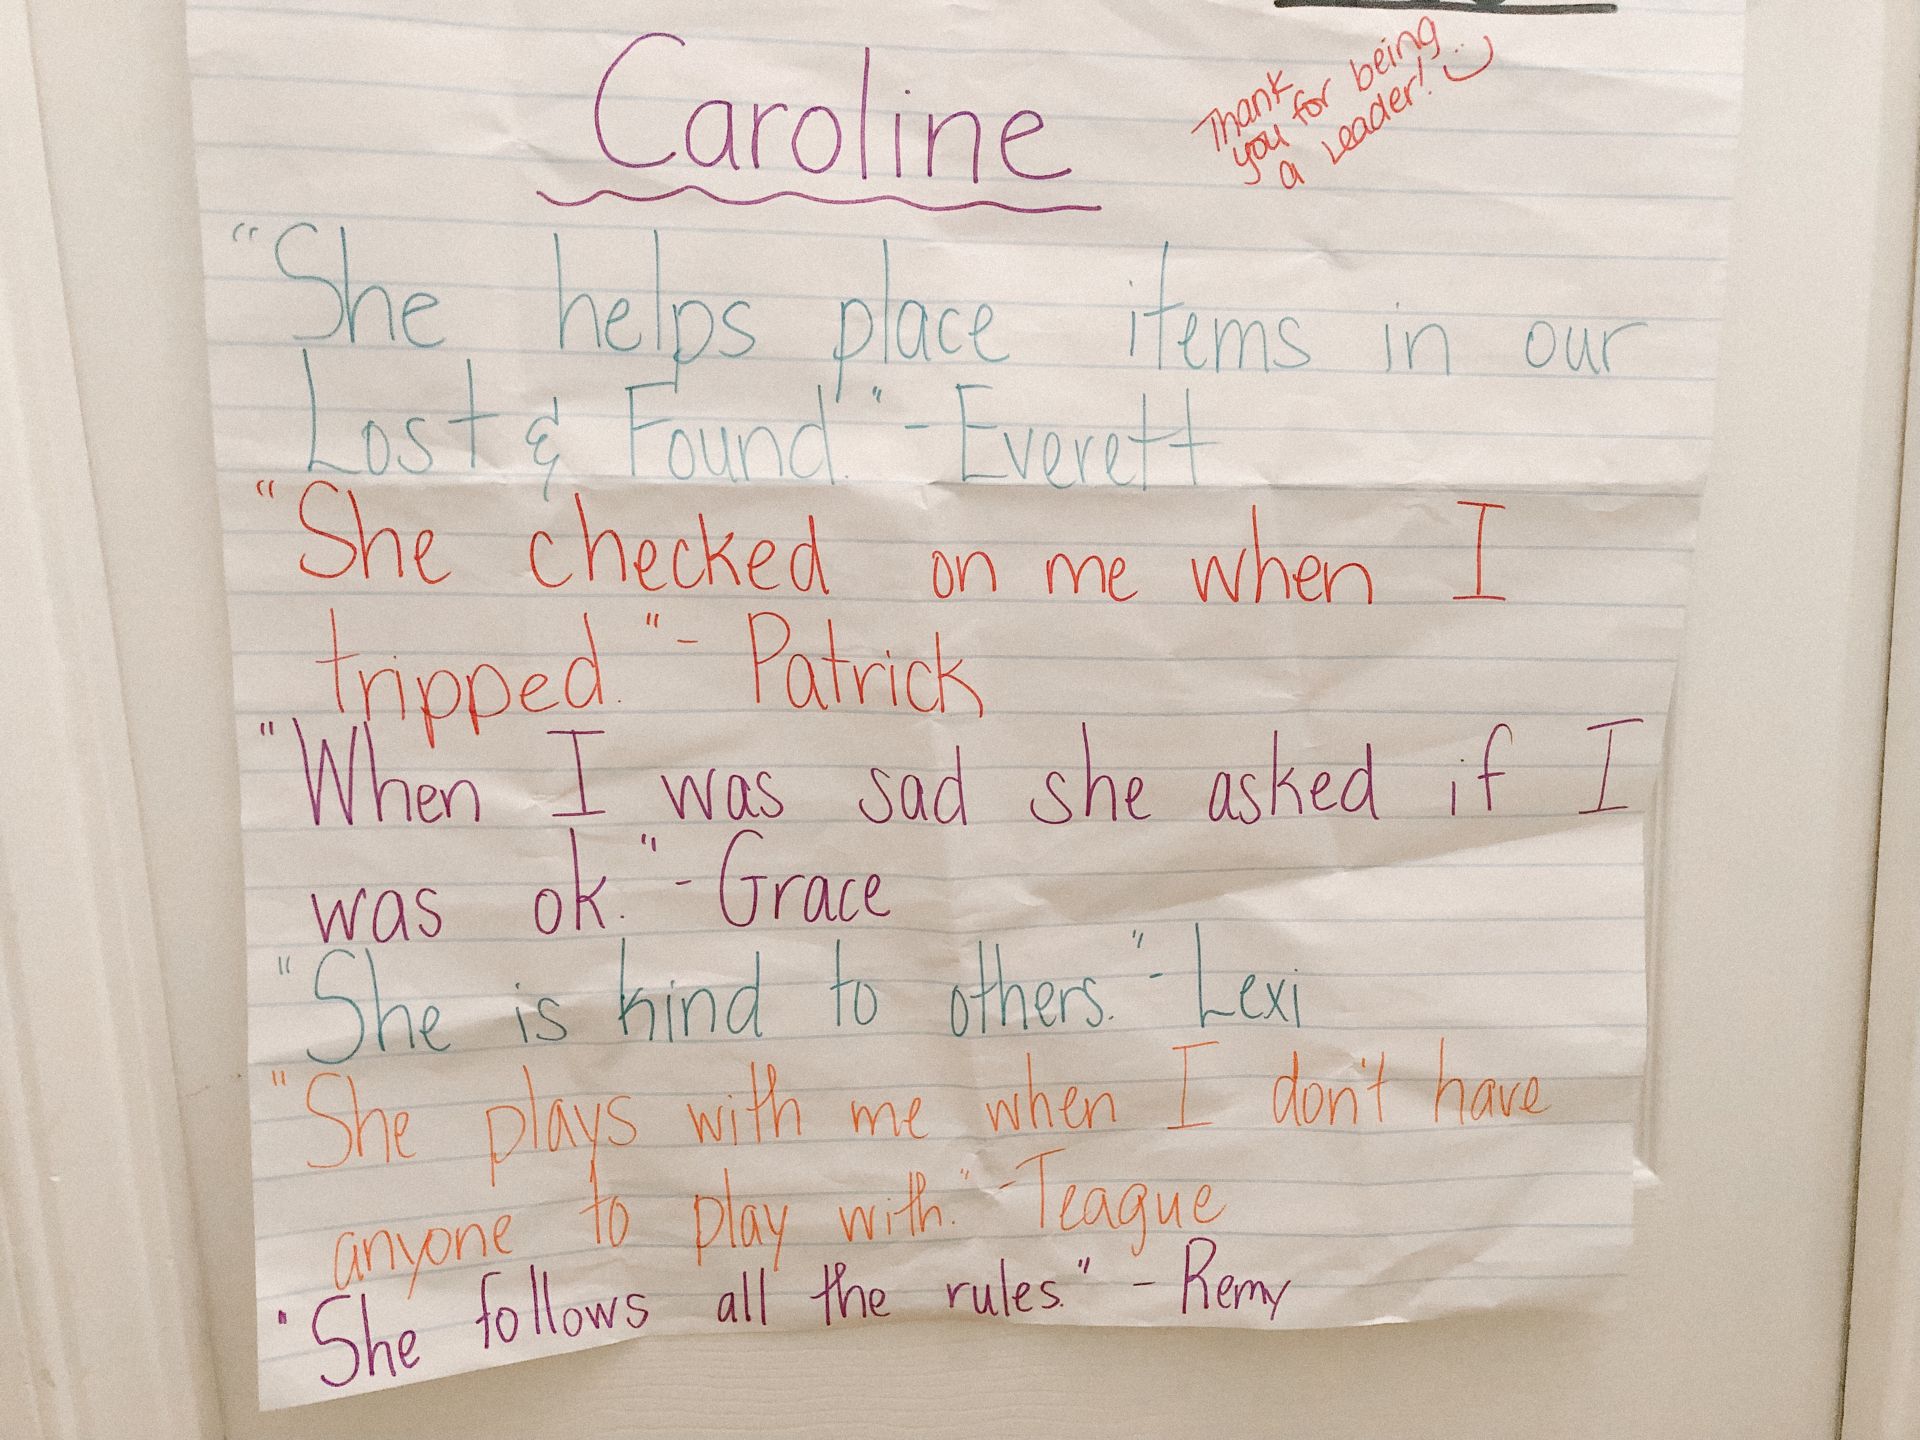 Caroline
Thank
you for being
a Leader!
"She helps place items in our
Lost & Found." - Everett
"She checked on me when I
tripped." - Patrick
"When I was sad she asked if I
was ok." - Grace
"She is kind to others." - Lexi
"She plays with me when I don't have
anyone to play with." - Teague
"She follows all the rules." - Remy